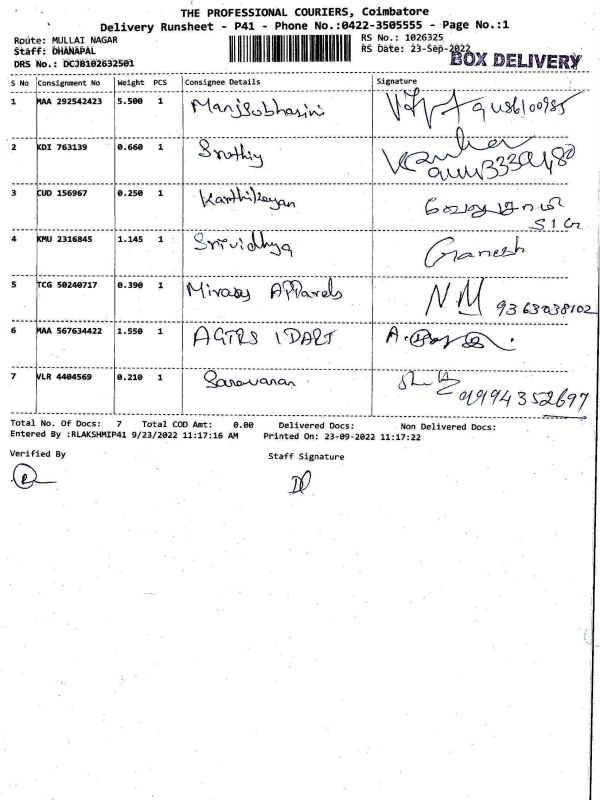 THE PROFESSIONAL COURIERS, Coimbatore
Delivery Runsheet - P41 - Phone No.:0422-3505555 - Page No.:1
Route: MULLAI NAGAR
RS No.: 1026325
Staff: DHANAPAL
RS Date: 23-Sep-2022
BOX DELIVERY
DRS No.: DCJB102632501
S No Consignment No Weight PCS Consignee Details Signature
1 MAA 292542423 5.500 1 Manjsubhasini
2 KDI 763139 0.660 1 Sruthiy
3 CUD 156967 0.250 1 Karthikeyan
4 KMU 2316845 1.145 1 Srividhya Ganesh
5 TCG 50240717 0.390 1 Mirasys Apparels N.M 9363038102
6 MAA 567634422 1.550 1 AGTRS IDART
7 VLR 4404569 0.210 1 Saravanan 9994352697
Total No. Of Docs: 7 Total COD Amt: 0.00 Delivered Docs: Non Delivered Docs:
Entered By :RLAKSHMIP41 9/23/2022 11:17:16 AM Printed On: 23-09-2022 11:17:22
Verified By
Staff Signature